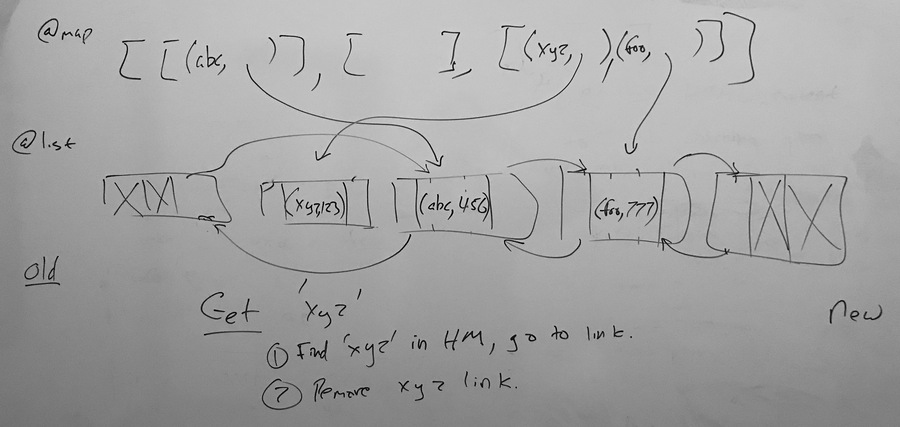 @map
[ [(abc, )], [ ], [(xyz, ),(foo, )] ]
@list
(xyz,123) (abc,456) (foo,777)
old
Get 'xyz'
new
① Find 'xyz' in HM, go to link.
② Remove xyz link.